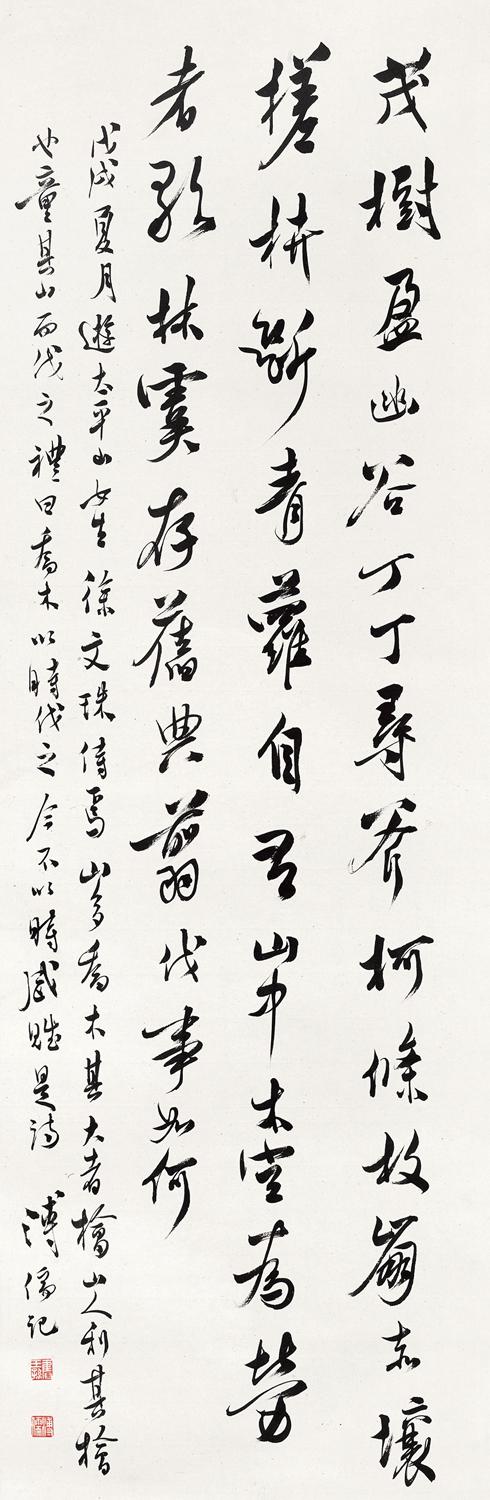 茂樹盈幽谷丁丁尋斧柯條枚崩赤壤
槎枿斷青蘿自有山中木空為勞
者歌林虞存舊典翦伐事如何
戊戌夏月遊太平山女生徐文珠侍焉山多喬木其大者檜山人利其檜
也童其山而伐之禮曰喬木以時伐之今不以時感賦是詩 溥儒記
舊王孫
溥儒